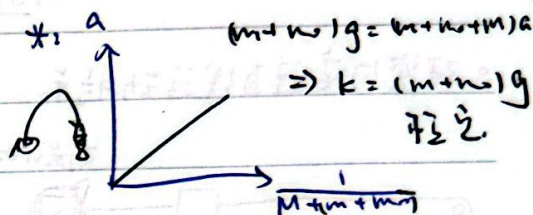 *: a
(m+m₀)g = (m+m₀+M)a
⇒ k = (m+m₀)g
恒定.
1
M+(m+m₀)